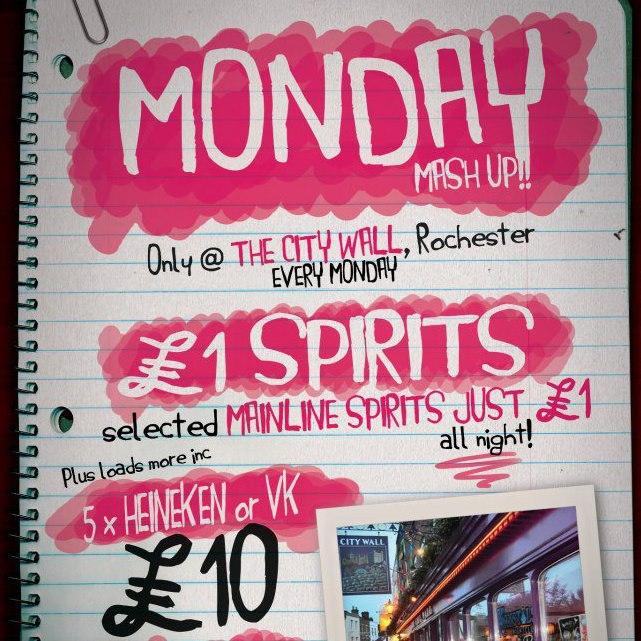 MONDAY
MASH UP!!
Only @ THE CITY WALL, Rochester
EVERY MONDAY
£1 SPIRITS
selected MAINLINE SPIRITS JUST £1
all night!
Plus loads more inc
5 x HEINEKEN or VK
£10
CITY WALL